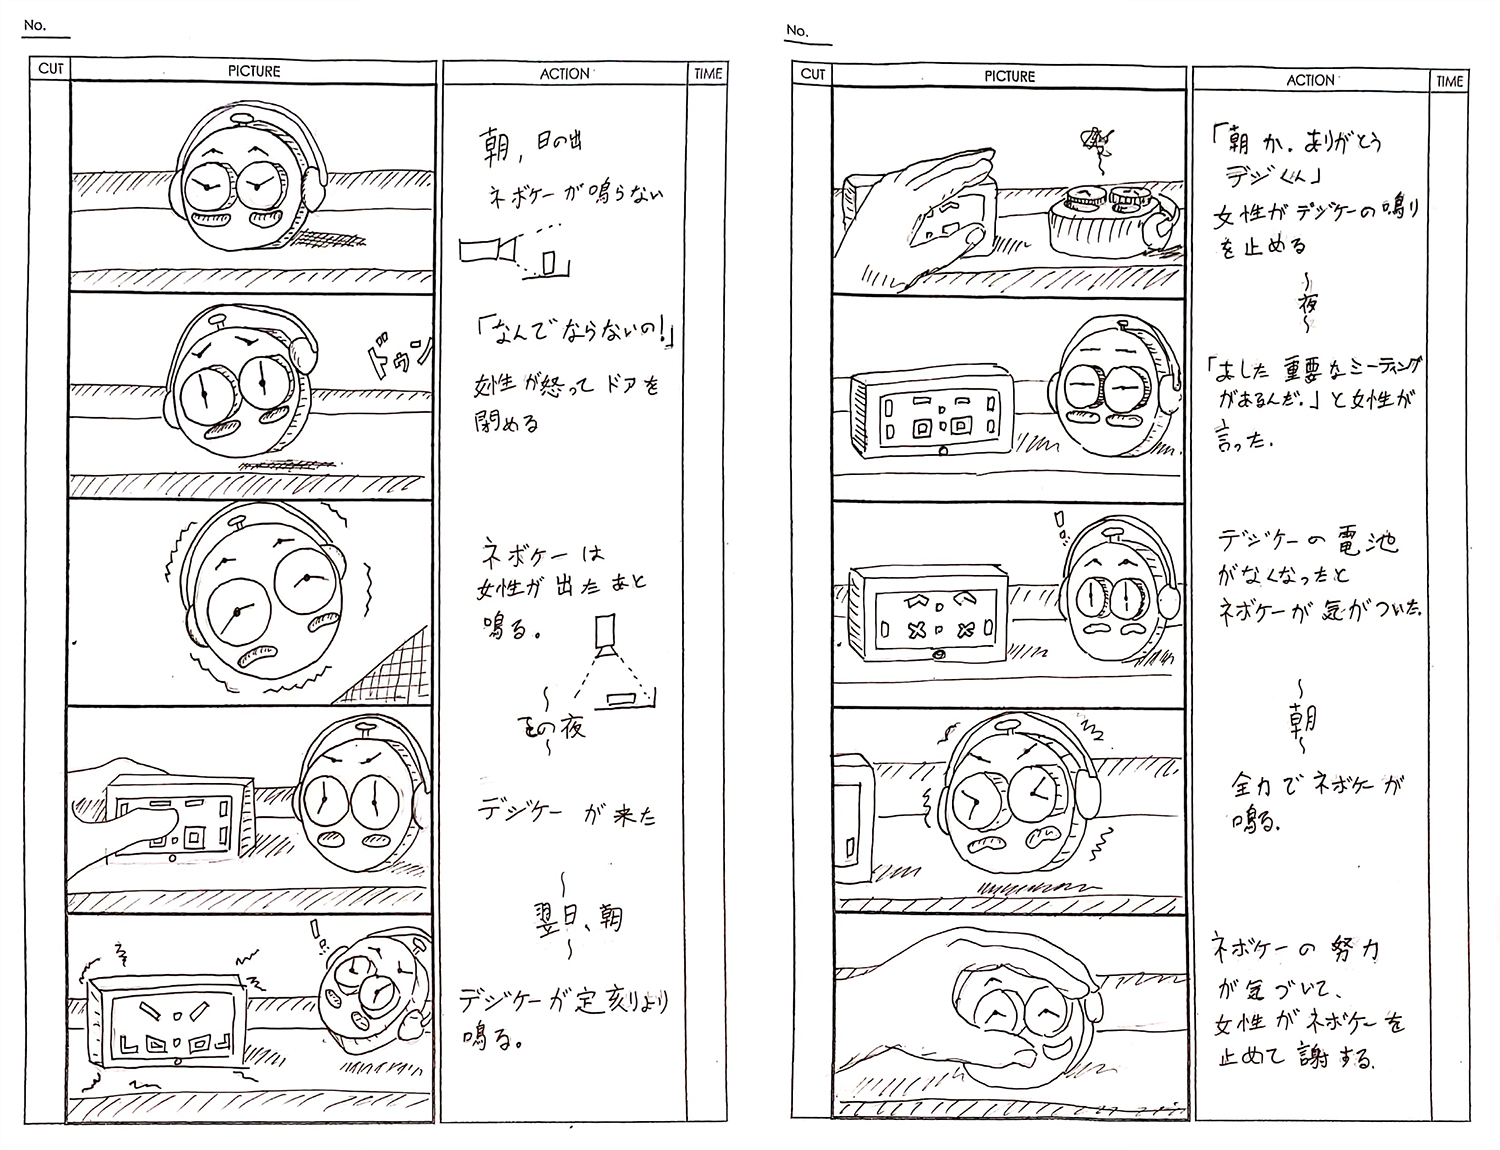 No.
CUT
PICTURE
ACTION
TIME
朝,日の出
ネボケーが鳴らない
「なんでならないの!」
ドゥン
女性が怒ってドアを
閉める
ネボケーは
女性が出たあと
鳴る。
〜
その夜
〜
デジケーが来た
〜
翌日、朝
〜
デジケーが定刻より
鳴る。
No.
CUT
PICTURE
ACTION
TIME
「朝か.ありがとう
デジくん」
女性がデジケーの鳴り
を止める
〜
夜
〜
「あした重要なミーティング
があるんだ.」と女性が
言った.
デジケーの電池
がなくなったと
ネボケーが気がついた.
〜
朝
〜
全力でネボケーが
鳴る.
ネボケーの努力
が気づいて、
女性がネボケーを
止めて謝する.